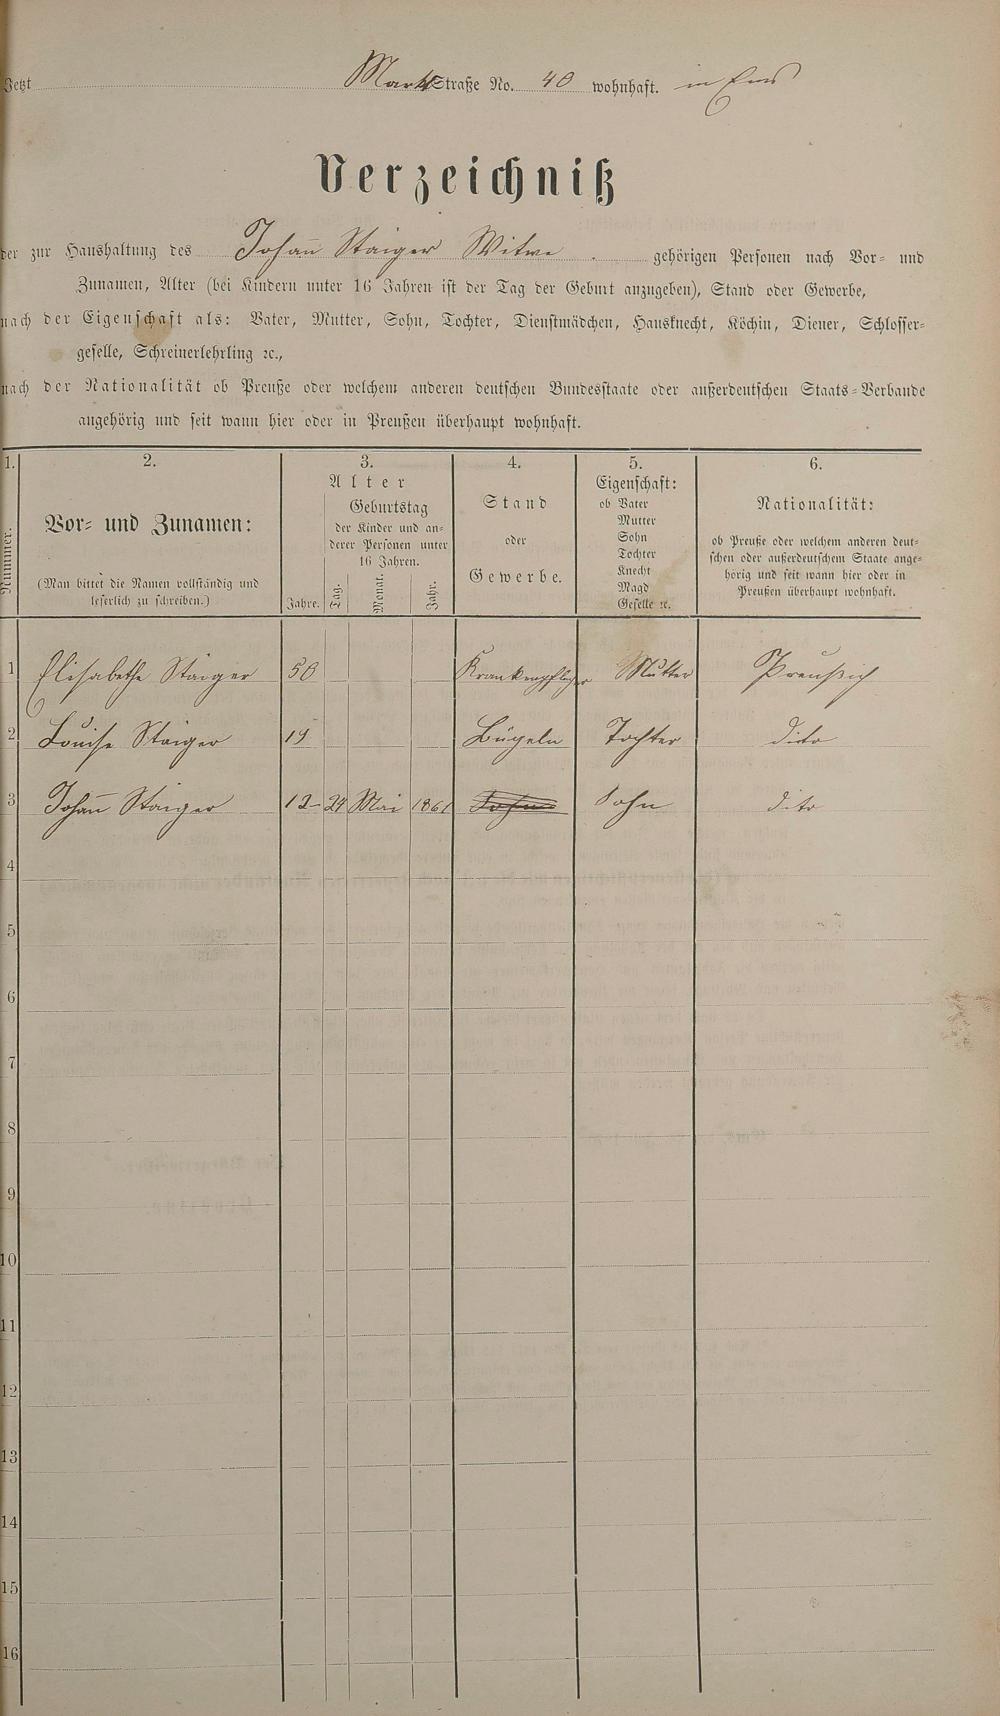 Jetzt Markt Straße No. 40 wohnhaft. in Ems
Verzeichniß
der zur Haushaltung des Johann Staiger Witwe gehörigen Personen nach Vor- und
Zunamen, Alter (bei Kindern unter 16 Jahren ist der Tag der Geburt anzugeben), Stand oder Gewerbe,
nach der Eigenschaft als: Vater, Mutter, Sohn, Tochter, Dienstmädchen, Hausknecht, Köchin, Diener, Schlosser-
geselle, Schreinerlehrling ꝛc.,
nach der Nationalität ob Preuße oder welchem anderen deutschen Bundesstaate oder außerdeutschen Staats-Verbande
angehörig und seit wann hier oder in Preußen überhaupt wohnhaft.
1.
Nummer.
2.
Vor- und Zunamen:
(Man bittet die Namen vollständig und
leserlich zu schreiben.)
3.
Alter
Geburtstag
der Kinder und an-
derer Personen unter
16 Jahren.
Jahre. Tag. Monat. Jahr.
4.
Stand
oder
Gewerbe.
5.
Eigenschaft:
ob Vater
Mutter
Sohn
Tochter
Knecht
Magd
Geselle ꝛc.
6.
Nationalität:
ob Preuße oder welchem anderen deut-
schen oder außerdeutschem Staate ange-
hörig und seit wann hier oder in
Preußen überhaupt wohnhaft.
1 Elisabethe Staiger 50 Krankenpfleger Mutter Preußich
2 Louise Staiger 19 Bügeln Tochter dito
3 Johann Staiger 12 24 Mai 1861 Sohn Sohn dito
4
5
6
7
8
9
10
11
12
13
14
15
16